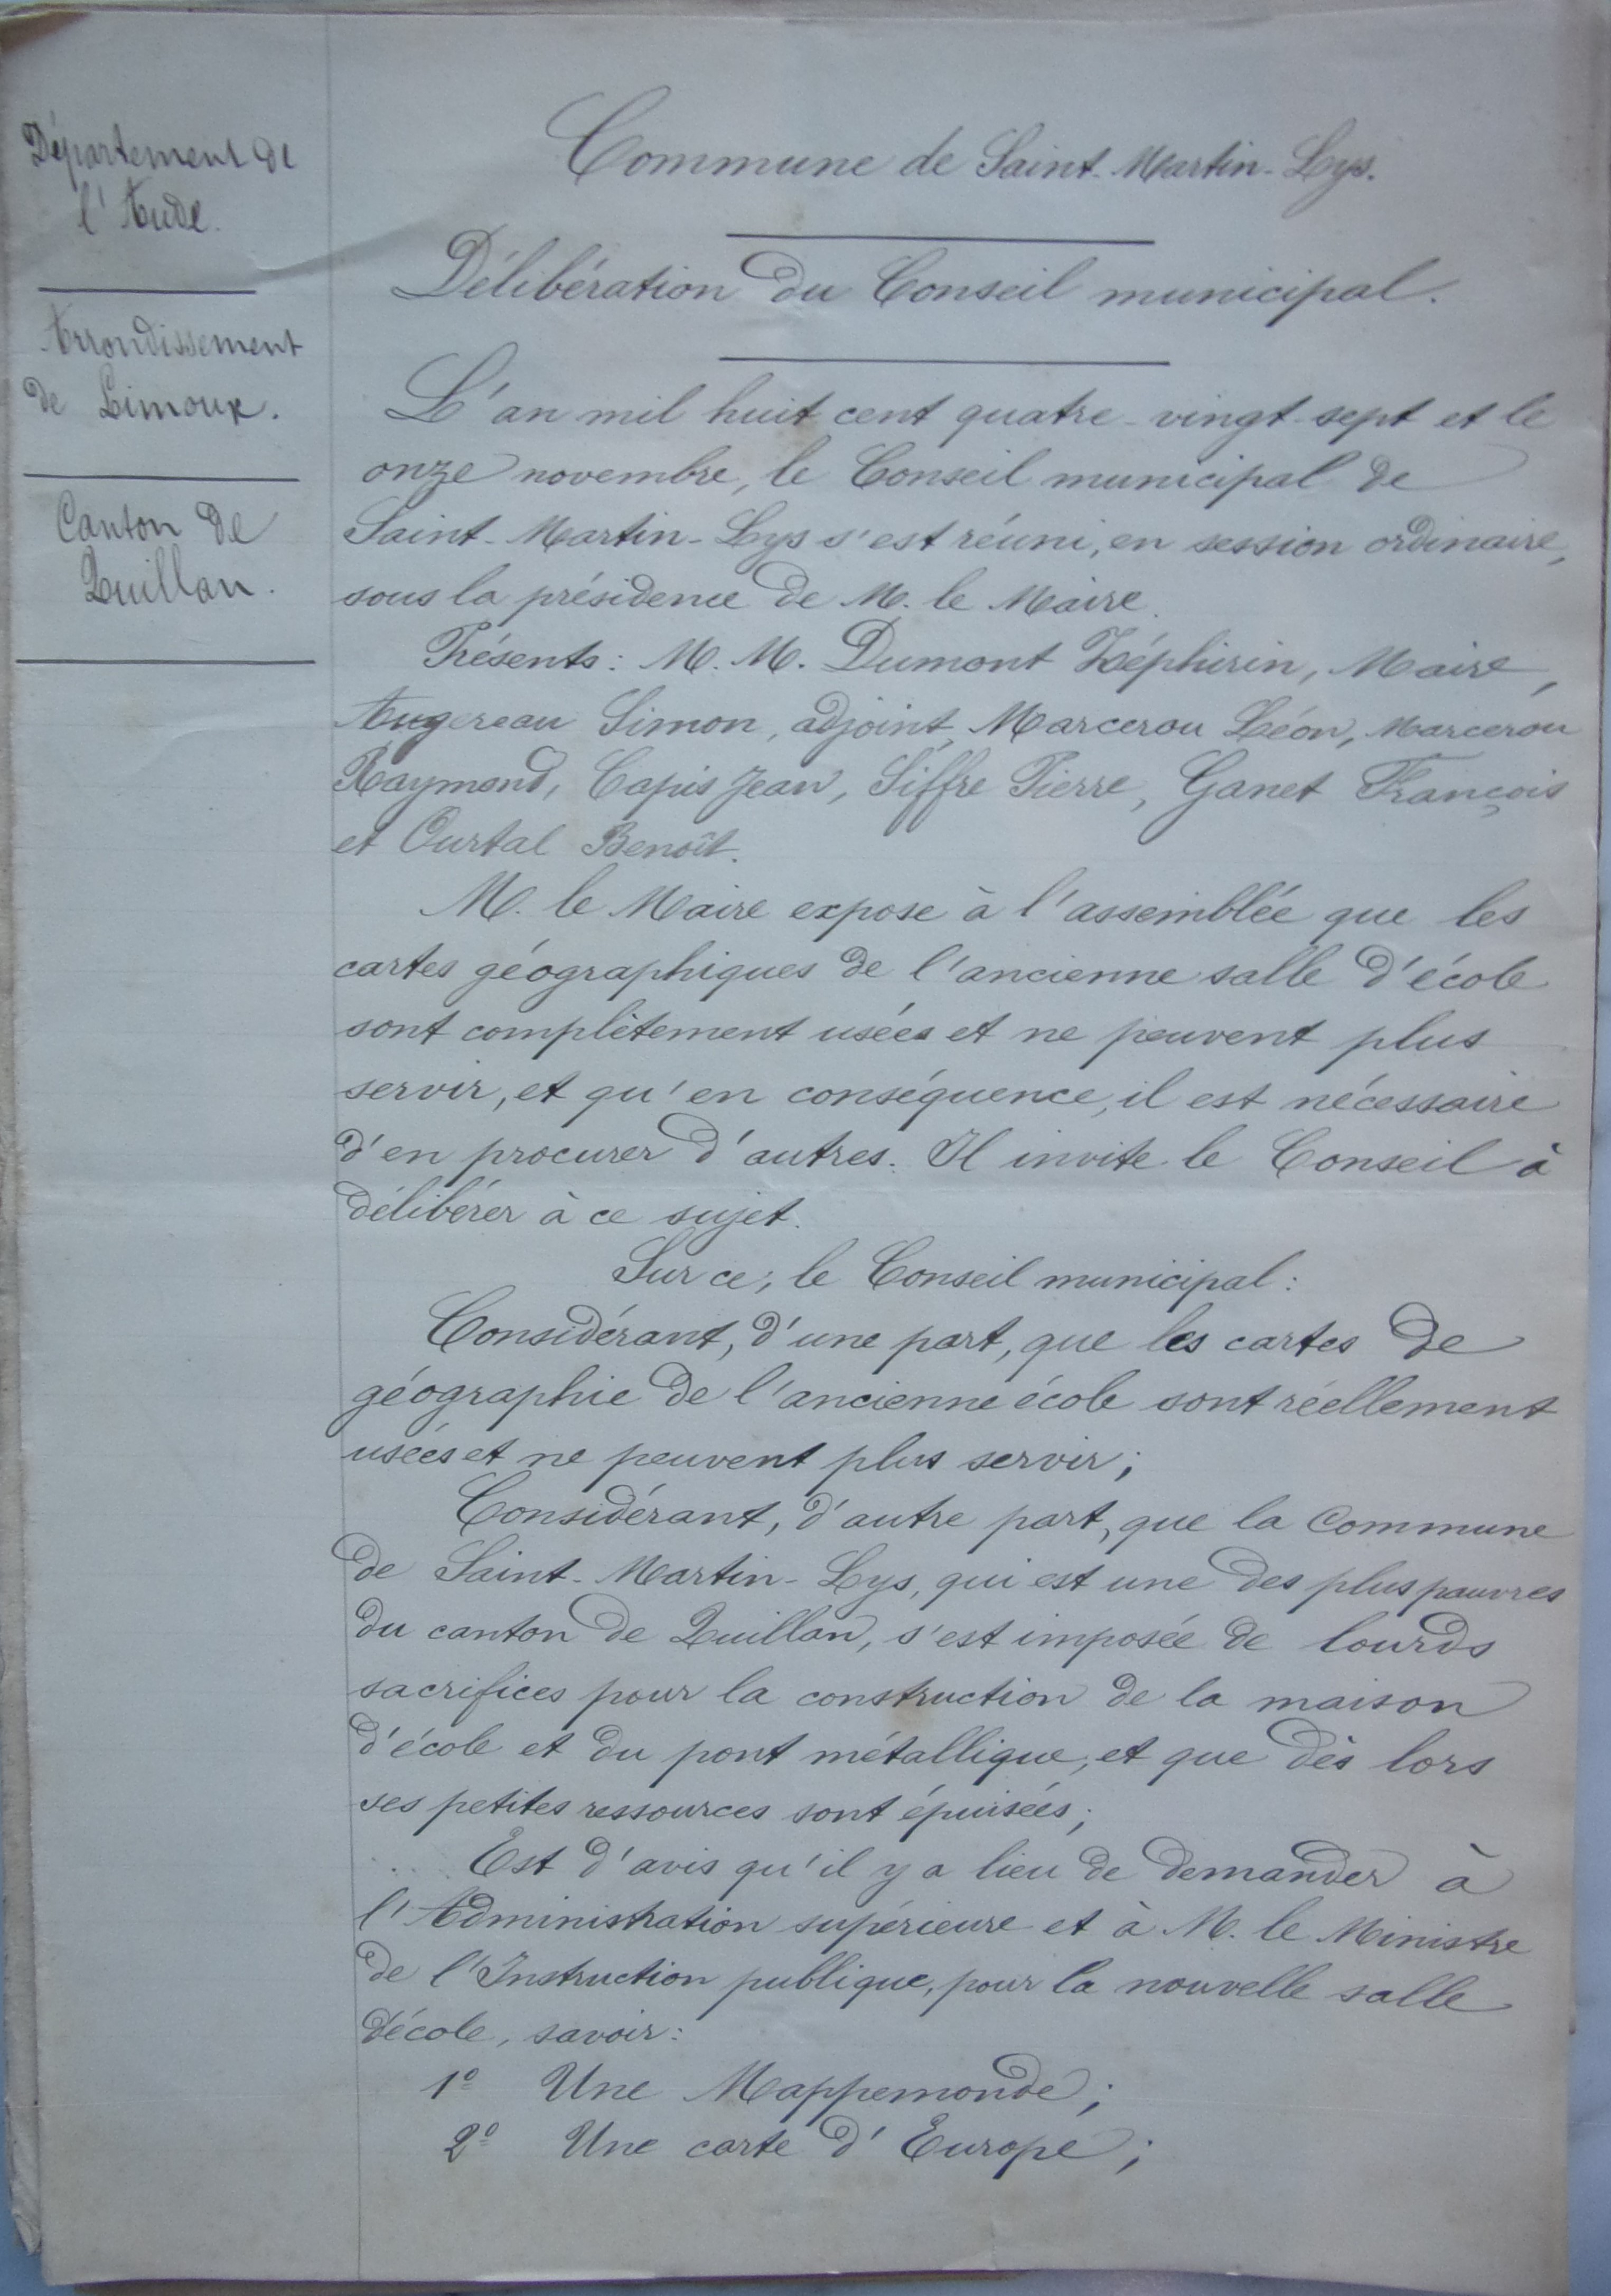 Département de
l'Aude.
Arrondissement
de Limoux.
Canton de
Quillan.
Commune de Saint-Martin-Lys.
Délibération du Conseil municipal.
L'an mil huit cent quatre-vingt-sept et le
onze novembre, le Conseil municipal de
Saint-Martin-Lys s'est réuni, en session ordinaire,
sous la présidence de M. le Maire.
Présents: M. M. Dumont Zéphirin, Maire,
Augereau Simon, adjoint, Marcerou Léon, Marcerou
Raymond, Capis Jean, Siffre Pierre, Ganet François
et Ourtal Benoît.
M. le Maire expose à l'assemblée que les
cartes géographiques de l'ancienne salle d'école
sont complètement usées et ne peuvent plus
servir, et qu'en conséquence, il est nécessaire
d'en procurer d'autres. Il invite le Conseil à
délibérer à ce sujet.
Sur ce, le Conseil municipal:
Considérant, d'une part, que les cartes de
géographie de l'ancienne école sont réellement
usées et ne peuvent plus servir;
Considérant, d'autre part, que la Commune
de Saint-Martin-Lys, qui est une des plus pauvres
du canton de Quillan, s'est imposée de lourds
sacrifices pour la construction de la maison
d'école et du pont métallique, et que dès lors
ses petites ressources sont épuisées;
Est d'avis qu'il y a lieu de demander à
l'Administration supérieure et à M. le Ministre
de l'Instruction publique, pour la nouvelle salle
d'école, savoir:
1º Une Mappemonde;
2º Une carte d'Europe;